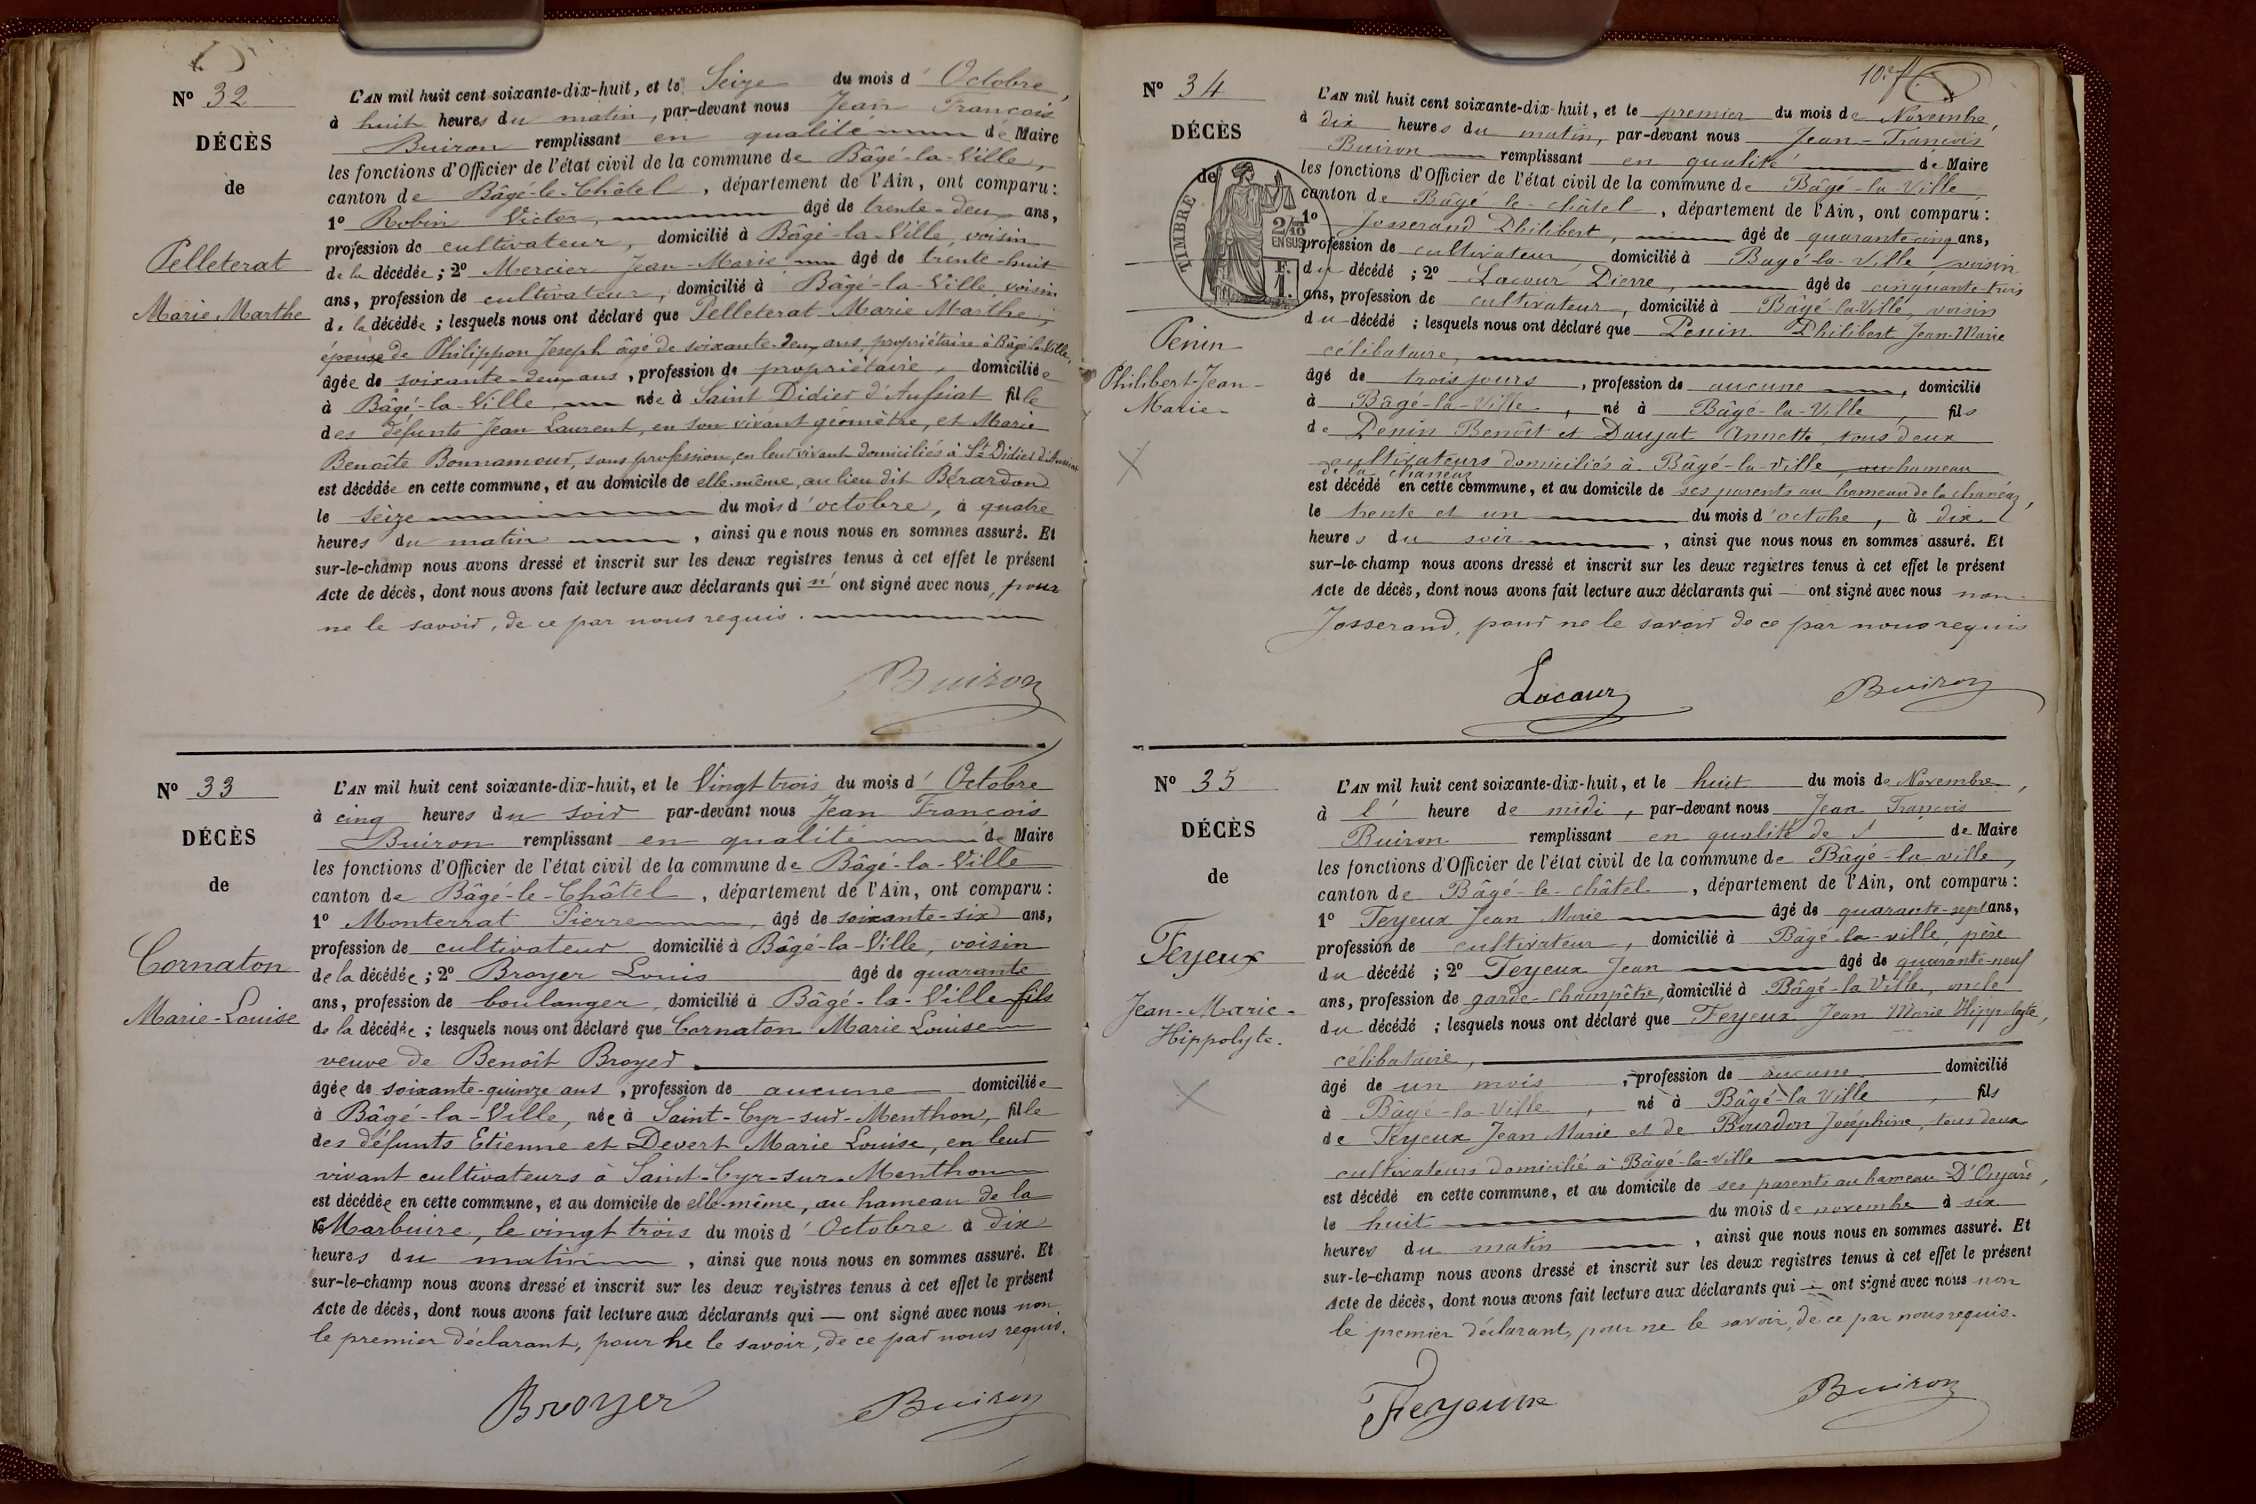 Nº 32
DÉCÈS
de
Pelleterat
Marie Marthe
L'AN mil huit cent soixante-dix-huit, et le Seize du mois d'Octobre,
à huit heures du matin, par-devant nous Jean François
Buiron remplissant en qualité de Maire
les fonctions d'Officier de l'état civil de la commune de Bâgé-la-Ville,
canton de Bâgé-le-Châtel, département de l'Ain, ont comparu :
1º Robin Victor, âgé de trente-deux ans,
profession de cultivateur, domicilié à Bâgé-la-Ville, voisin
de la décédée ; 2º Mercier Jean-Marie âgé de trente-huit
ans, profession de cultivateur, domicilié à Bâgé-la-Ville, voisin
de la décédée ; lesquels nous ont déclaré que Pelleterat Marie Marthe,
épouse de Philippon Joseph âgé de soixante-deux ans, propriétaire à Bâgé-la-Ville,
âgée de soixante-deux ans, profession de propriétaire, domiciliée
à Bâgé-la-Ville née à Saint Didier d'Aussiat fille
des défunts Jean Laurent, en son vivant géomètre, et Marie
Benoîte Bonnamour, sans profession, en leur vivant domiciliés à St Didier d'Aussiat
est décédée en cette commune, et au domicile de elle-même, au lieu dit Bérardon
le seize du mois d'octobre, à quatre
heures du matin, ainsi que nous nous en sommes assuré. Et
sur-le-champ nous avons dressé et inscrit sur les deux registres tenus à cet effet le présent
Acte de décès, dont nous avons fait lecture aux déclarants qui n'ont signé avec nous, pour
ne le savoir, de ce par nous requis.
Buiron
Nº 33
DÉCÈS
de
Cornaton
Marie-Louise
L'AN mil huit cent soixante-dix-huit, et le Vingt trois du mois d'Octobre
à cinq heures du soir par-devant nous Jean François
Buiron remplissant en qualité de Maire
les fonctions d'Officier de l'état civil de la commune de Bâgé-la-Ville
canton de Bâgé-le-Châtel, département de l'Ain, ont comparu :
1º Monterrat Pierre, âgé de soixante-six ans,
profession de cultivateur domicilié à Bâgé-la-Ville, voisin
de la décédée ; 2º Broyer Louis âgé de quarante
ans, profession de boulanger, domicilié à Bâgé-la-Ville fils
de la décédée ; lesquels nous ont déclaré que Cornaton Marie Louise
veuve de Benoît Broyer
âgée de soixante-quinze ans, profession de aucune domiciliée
à Bâgé-la-Ville, née à Saint-Cyr-sur-Menthon, fille
des défunts Etienne et Devert Marie Louise, en leur
vivant cultivateurs à Saint-Cyr-sur-Menthon
est décédée en cette commune, et au domicile de elle-même, au hameau de la
Marbuire, le vingt trois du mois d'Octobre à dix
heures du matin, ainsi que nous nous en sommes assuré. Et
sur-le-champ nous avons dressé et inscrit sur les deux registres tenus à cet effet le présent
Acte de décès, dont nous avons fait lecture aux déclarants qui — ont signé avec nous non
le premier déclarant, pour ne le savoir, de ce par nous requis.
Broyer
Buiron
Nº 34
DÉCÈS
de
TIMBRE
2/10
EN SUS
F.
1.
Penin
Philibert-Jean-
Marie
L'AN mil huit cent soixante-dix-huit, et le premier du mois de Novembre,
à dix heures du matin, par-devant nous Jean-François
Buiron remplissant en qualité de Maire
les fonctions d'Officier de l'état civil de la commune de Bâgé-la-Ville,
canton de Bâgé-le-châtel, département de l'Ain, ont comparu :
1º Josserand Philibert, âgé de quarante cinq ans,
profession de cultivateur, domicilié à Bagé-la-Ville voisin
du décédé ; 2º Lacour Pierre, âgé de cinquante-trois
ans, profession de cultivateur, domicilié à Bâgé-la-Ville, voisin
du décédé ; lesquels nous ont déclaré que Penin Philibert Jean-Marie
célibataire,
âgé de trois jours, profession de aucune, domicilié
à Bâgé-la-Ville, né à Bâgé-la-Ville, fils
de Penin Benoît et Daujat Annette, tous deux
cultivateurs domiciliés à Bâgé-la-Ville, au hameau
de la
est décédé en cette commune, et au domicile de ses parents au hameau de la
le trente et un du mois d'octobre, à dix
heures du soir, ainsi que nous nous en sommes assuré. Et
sur-le-champ nous avons dressé et inscrit sur les deux registres tenus à cet effet le présent
Acte de décès, dont nous avons fait lecture aux déclarants qui — ont signé avec nous non
Josserand, pour ne le savoir de ce par nous requis
Lacour
Buiron
Nº 35
DÉCÈS
de
Feyeux
Jean-Marie-
Hippolyte.
L'AN mil huit cent soixante-dix-huit, et le huit du mois de Novembre,
à l' heure de midi, par-devant nous Jean François
Buiron remplissant en qualité de de Maire
les fonctions d'Officier de l'état civil de la commune de Bâgé-la-ville,
canton de Bâgé-le-châtel, département de l'Ain, ont comparu :
1º Feyeux Jean Marie âgé de quarante-sept ans,
profession de cultivateur, domicilié à Bâgé-la-ville, père
du décédé ; 2º Feyeux Jean âgé de quarante-neuf
ans, profession de garde-champêtre, domicilié à Bâgé-la-Ville, oncle
du décédé ; lesquels nous ont déclaré que Feyeux Jean Marie Hippolyte,
célibataire,
âgé de un mois, profession de aucune domicilié
à Bâgé-la-Ville, né à Bâgé-la-Ville, fils
de Feyeux Jean Marie et de Bourdon Joséphine, tous deux
cultivateurs domicilié à Bâgé-la-Ville
est décédé en cette commune, et au domicile de ses parents au hameau
le huit du mois de novembre à six
heures du matin, ainsi que nous nous en sommes assuré. Et
sur-le-champ nous avons dressé et inscrit sur les deux registres tenus à cet effet le présent
Acte de décès, dont nous avons fait lecture aux déclarants qui — ont signé avec nous non
le premier déclarant, pour ne le savoir, de ce par nous requis.
Feyeux
Buiron